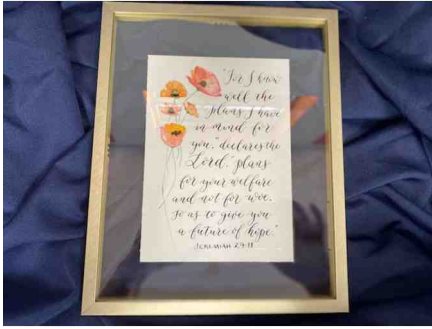 "For I know
well the
plans I have
in mind for
you," declares the
Lord, "plans
for your welfare
and not for woe.
so as to give you
a future of hope."
JEREMIAH 29:11